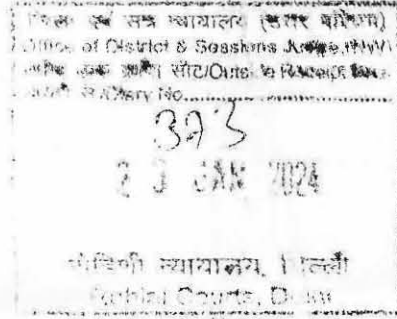 जिला एवं सत्र न्यायालय (उत्तर पश्चिम)
Office of District & Sessions Judge (NW)
सीट/Outside Receipt
Diary No.
2 3 JAN 2024
रोहिणी न्यायालय, दिल्ली
Rohini Courts, Delhi